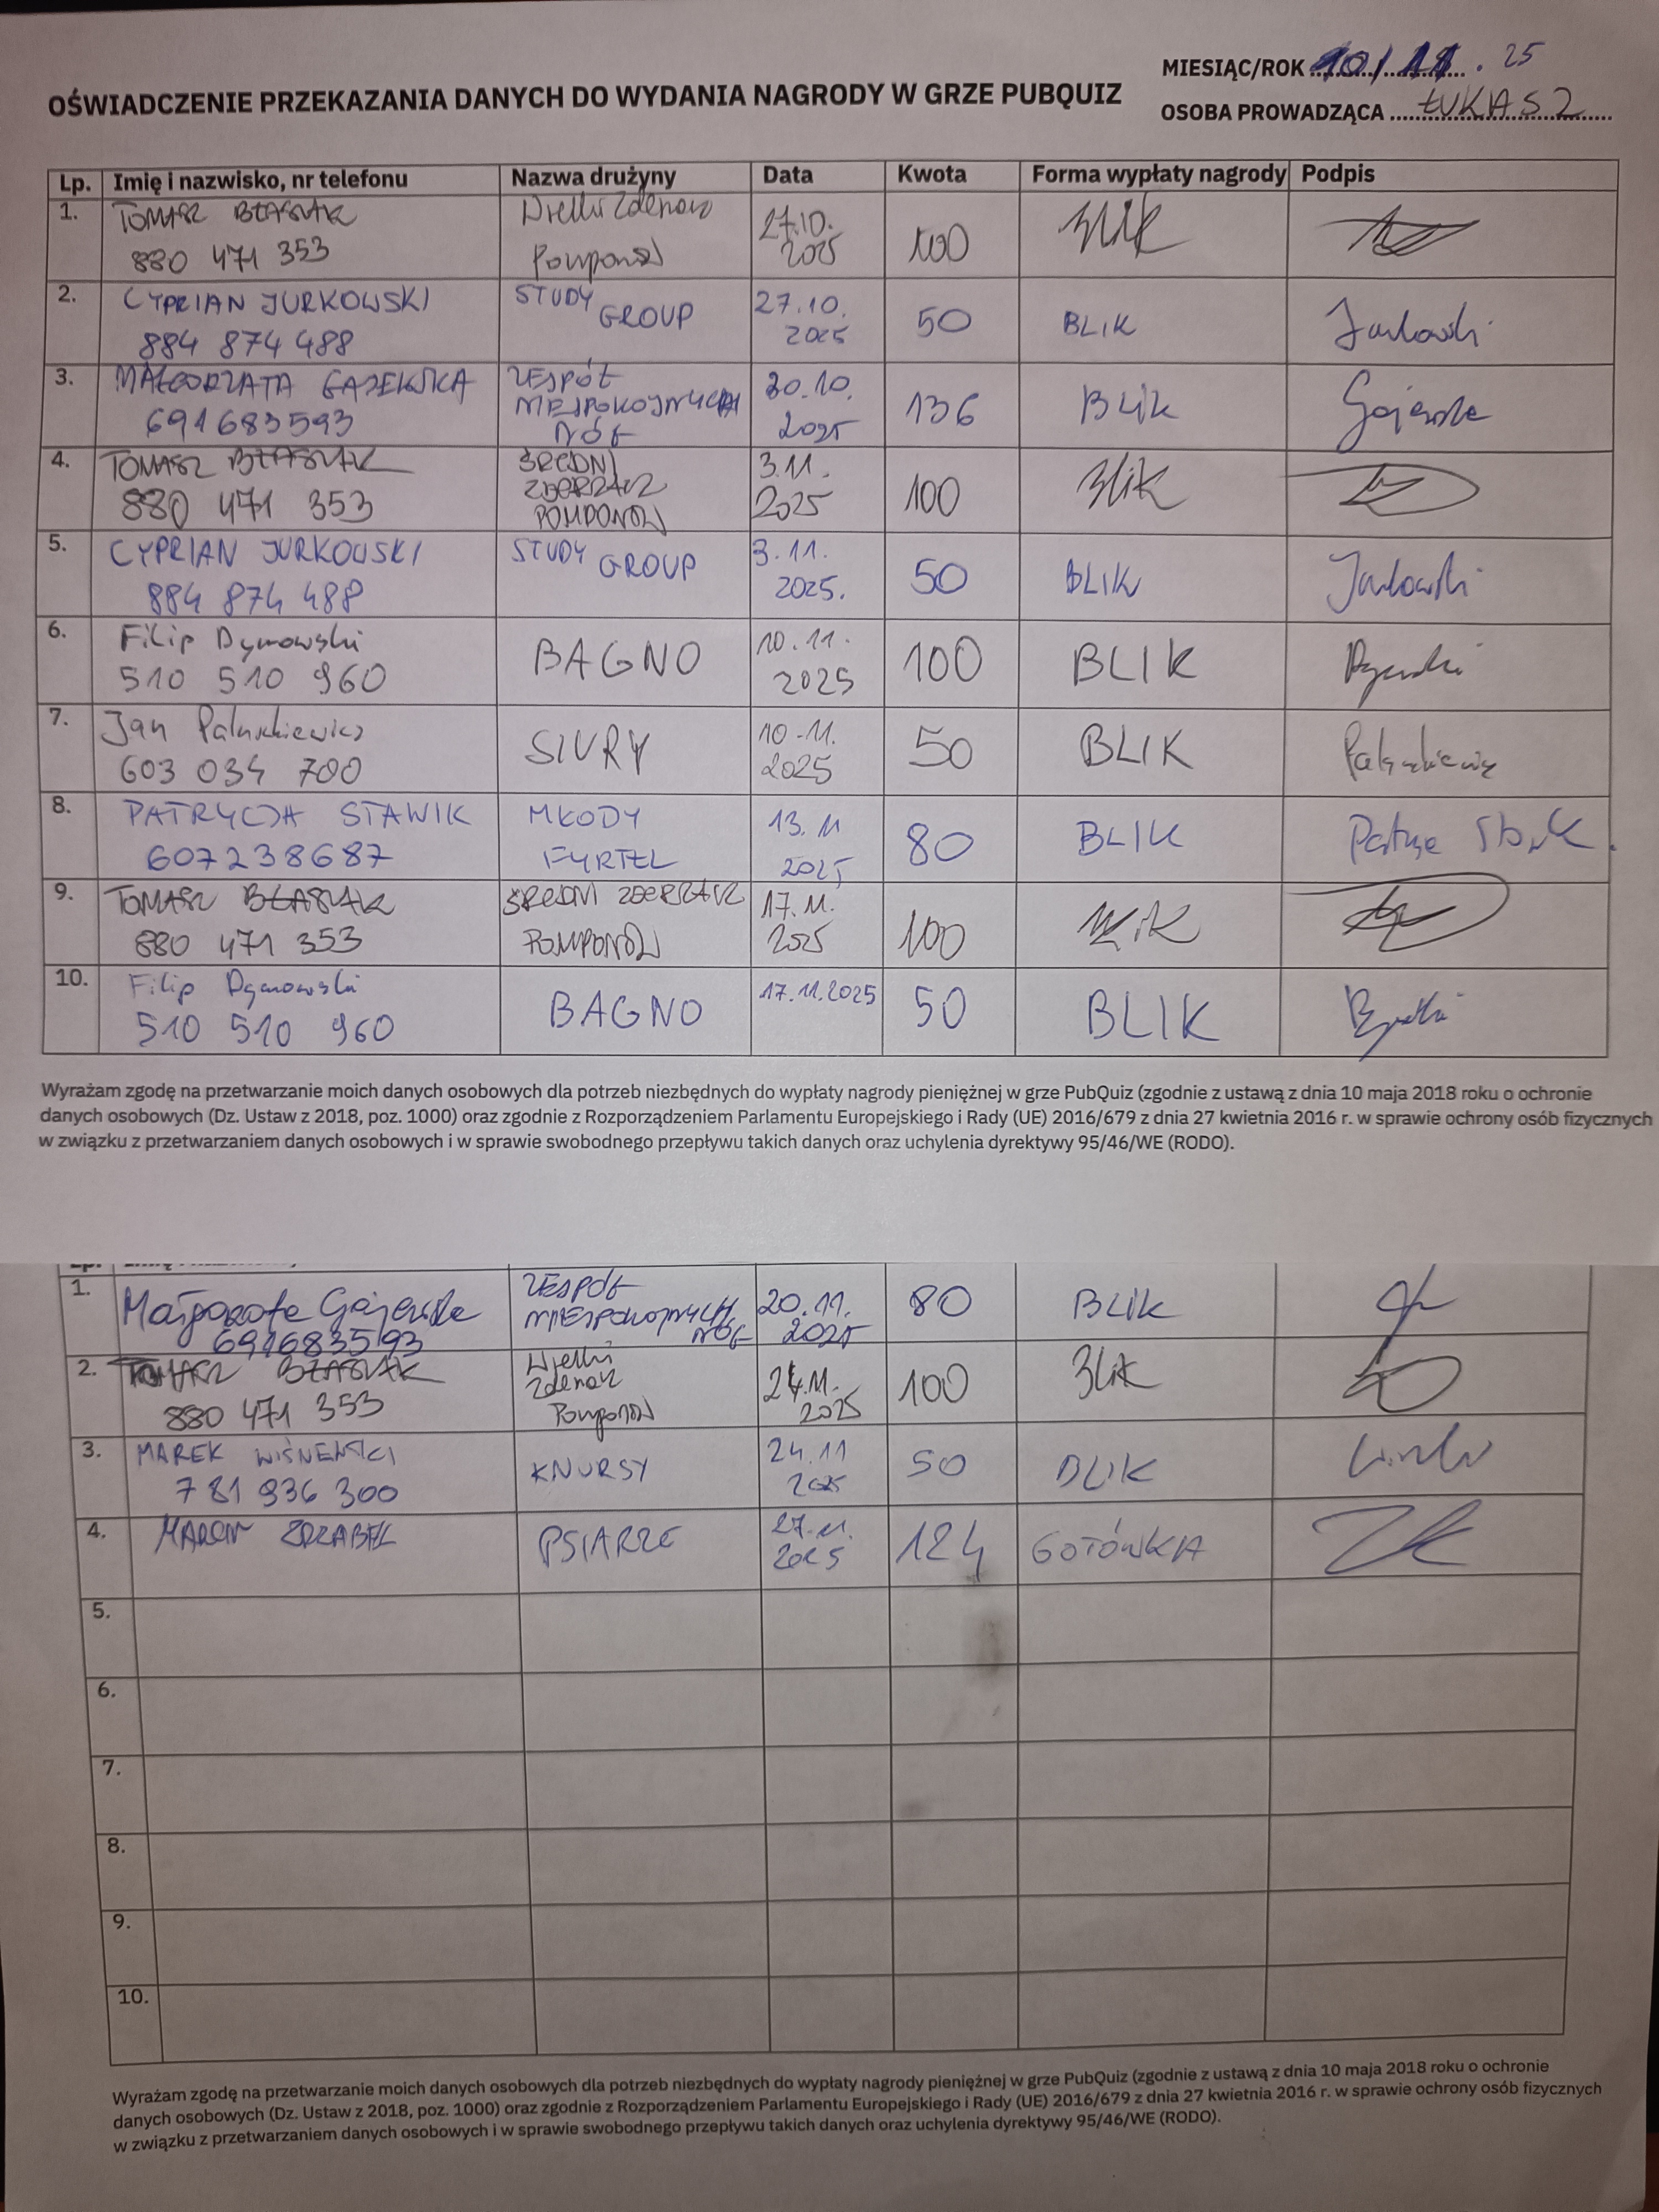 MIESIĄC/ROK 10/11.25
OŚWIADCZENIE PRZEKAZANIA DANYCH DO WYDANIA NAGRODY W GRZE PUBQUIZ
OSOBA PROWADZĄCA ŁUKASZ
Lp. Imię i nazwisko, nr telefonu Nazwa drużyny Data Kwota Forma wypłaty nagrody Podpis
1. TOMASZ BŁASIAK Wielki Zderzacz 27.10. 100 Blik
880 471 353 Pomponów 2025
2. CYPRIAN JURKOWSKI STUDY GROUP 27.10. 50 BLIK Jurkowski
884 874 488 2025
3. MAŁGORZATA GAJEWSKA ZESPÓŁ 30.10. 136 BLIK Gajewska
691683593 NIESPOKOJNYCH 2025
NÓG
4. TOMASZ BŁASIAK ŚREDNI 3.11. 100 Blik
880 471 353 ZDERZACZ 2025
POMPONÓW
5. CYPRIAN JURKOWSKI STUDY GROUP 3.11. 50 BLIK Jurkowski
884 874 488 2025.
6. Filip Dymowski BAGNO 10.11. 100 BLIK
510 510 960 2025
7. Jan Paluszkiewicz SIURY 10.11. 50 BLIK Paluszkiewicz
603 034 700 2025
8. PATRYCJA STAWIK MŁODY 13.11 80 BLIK
607238687 FYRTEL 2025
9. TOMASZ BŁASIAK ŚREDNI ZDERZACZ 17.11. 100 Blik
880 471 353 POMPONÓW 2025
10. Filip Dymowski BAGNO 17.11.2025 50 BLIK
510 510 960
Wyrażam zgodę na przetwarzanie moich danych osobowych dla potrzeb niezbędnych do wypłaty nagrody pieniężnej w grze PubQuiz (zgodnie z ustawą z dnia 10 maja 2018 roku o ochronie
danych osobowych (Dz. Ustaw z 2018, poz. 1000) oraz zgodnie z Rozporządzeniem Parlamentu Europejskiego i Rady (UE) 2016/679 z dnia 27 kwietnia 2016 r. w sprawie ochrony osób fizycznych
w związku z przetwarzaniem danych osobowych i w sprawie swobodnego przepływu takich danych oraz uchylenia dyrektywy 95/46/WE (RODO).
1. Małgorzata Gajewska ZESPÓŁ 20.11. 80 BLIK
691683593 NIESPOKOJNYCH NÓG 2025
2. TOMASZ BŁASIAK Wielki 24.11. 100 Blik
880 471 353 Zderzacz 2025
Pomponów
3. MAREK WIŚNIEWSKI KNURSY 24.11 50 BLIK
781 936 300 2025
4. MARCIN PSIARZE 27.11. 124 GOTÓWKA
2025
5.
6.
7.
8.
9.
10.
Wyrażam zgodę na przetwarzanie moich danych osobowych dla potrzeb niezbędnych do wypłaty nagrody pieniężnej w grze PubQuiz (zgodnie z ustawą z dnia 10 maja 2018 roku o ochronie
danych osobowych (Dz. Ustaw z 2018, poz. 1000) oraz zgodnie z Rozporządzeniem Parlamentu Europejskiego i Rady (UE) 2016/679 z dnia 27 kwietnia 2016 r. w sprawie ochrony osób fizycznych
w związku z przetwarzaniem danych osobowych i w sprawie swobodnego przepływu takich danych oraz uchylenia dyrektywy 95/46/WE (RODO).